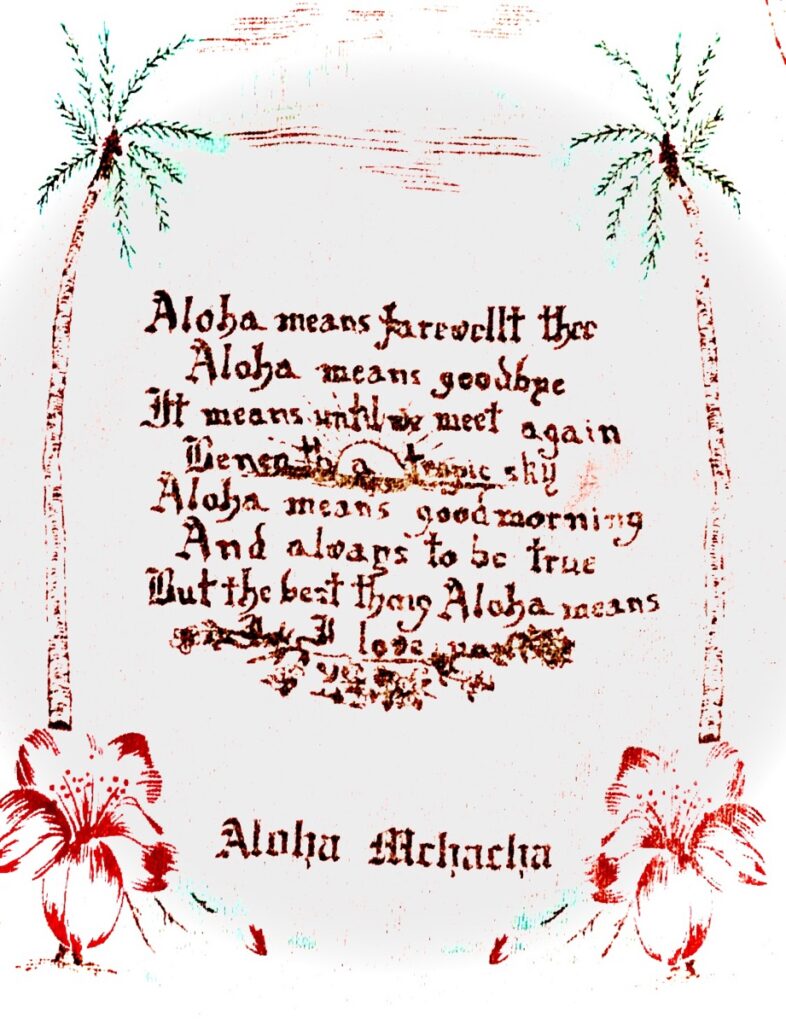 Aloha means farewellt thee
Aloha means goodbye
It means until we meet again
Beneath a tropic sky
Aloha means goodmorning
And always to be true
But the best thing Aloha means
Is I love you
Aloha Mchacha